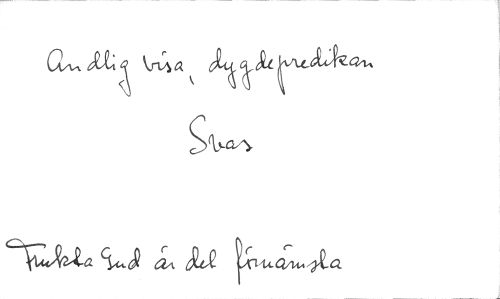 Andlig visa, dygdepredikan
Svas
Frukta Gud är det förnämsta